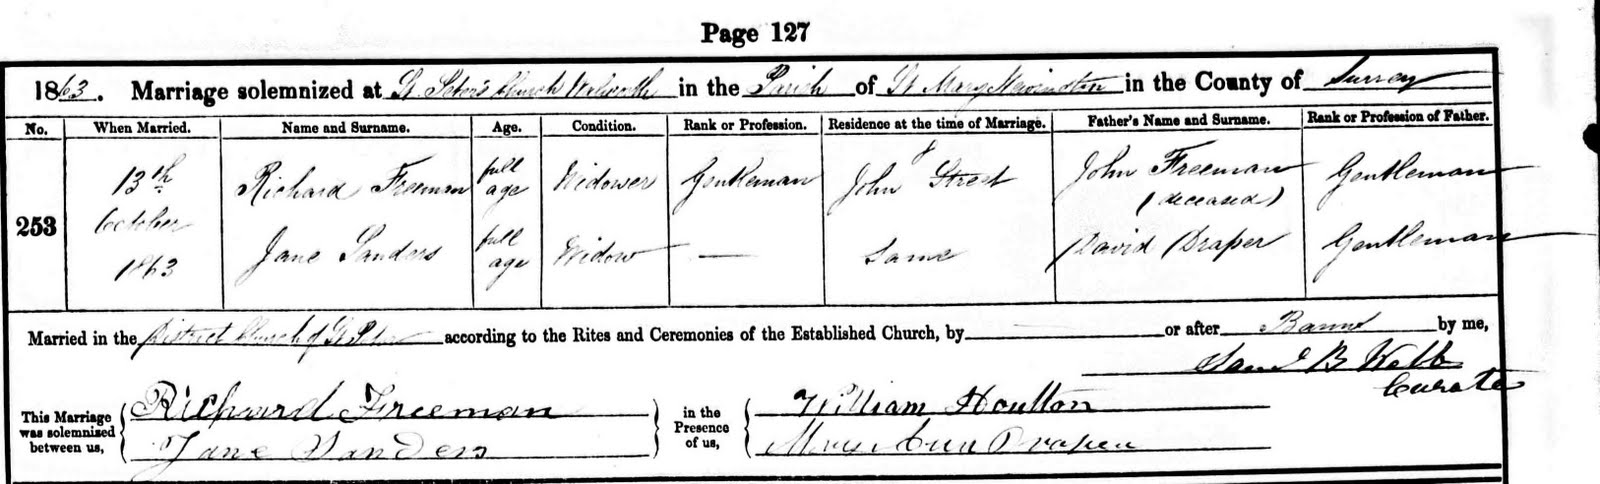 Page 127
1863. Marriage solemnized at St. Peter's Church Walworth in the Parish of St Mary Newington in the County of Surrey
No. When Married. Name and Surname. Age. Condition. Rank or Profession. Residence at the time of Marriage. Father's Name and Surname. Rank or Profession of Father.
253
13th
October
1863
Richard Freeman full age Widower Gentleman John Street John Freeman (deceased) Gentleman
Jane Sanders full age Widow — Same David Draper Gentleman
Married in the District Church of St Peter according to the Rites and Ceremonies of the Established Church, by or after Banns by me,
Saml B Webb
Curate
This Marriage was solemnized between us,
Richard Freeman
Jane Sanders
in the Presence of us,
William Houlton
Mary Ann Draper